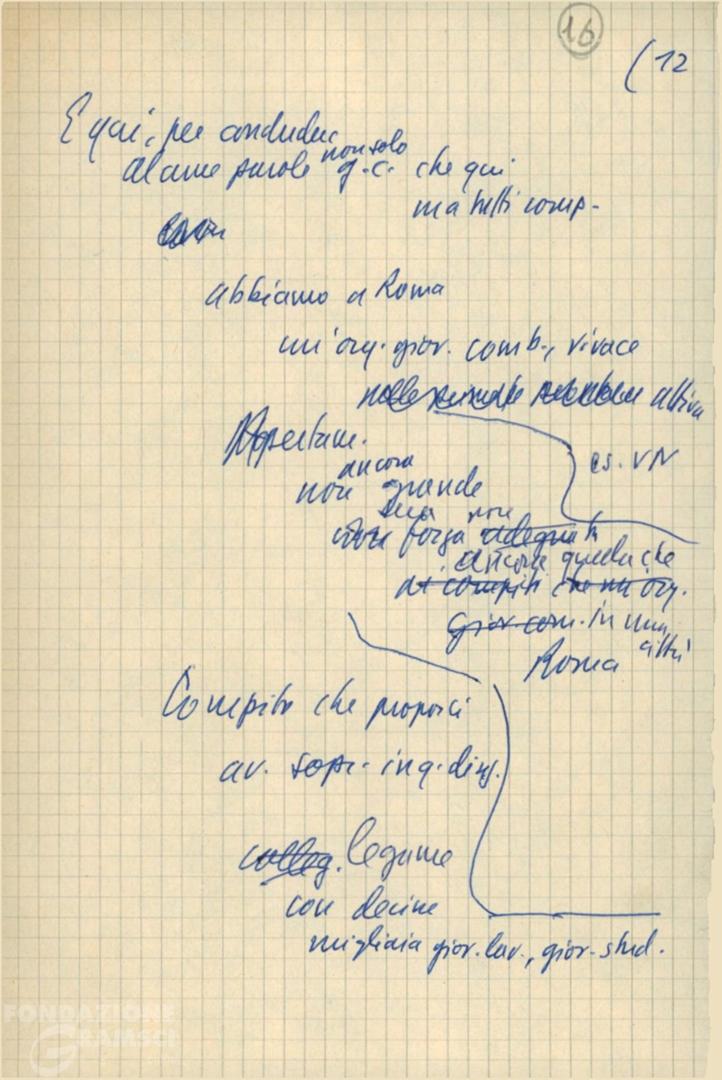 16
(12
E qui, per concludere
alcune parole non solo g.c. che qui
ma tutti comp.
abbiamo a Roma
un'org. giov. comb., vivace
attiva
Apertam.
es. VN
ancora
non grande
sua non
forza adeguata
ancora quella che
ai compiti che un'org.
giov. com. in una
città
Roma
Compito che proporci
av. sopr. in q. direz.
colleg. legame
con decine
migliaia giov. lav., giov. stud.
FONDAZIONE
GRAMSCI